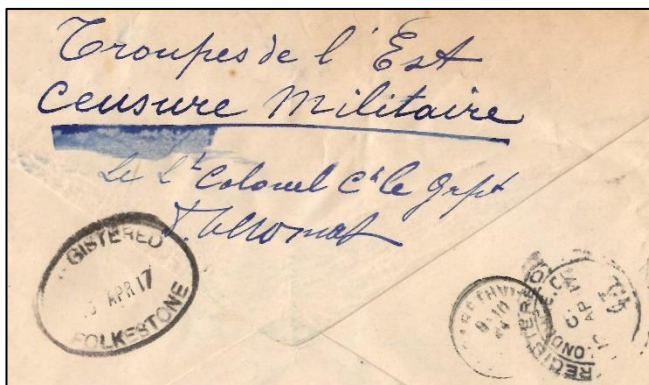 Troupes de l'Est
Censure Militaire
Le Lt Colonel Ct le Grpt
GISTERED
APR 17
FOLKESTONE
REGISTERED